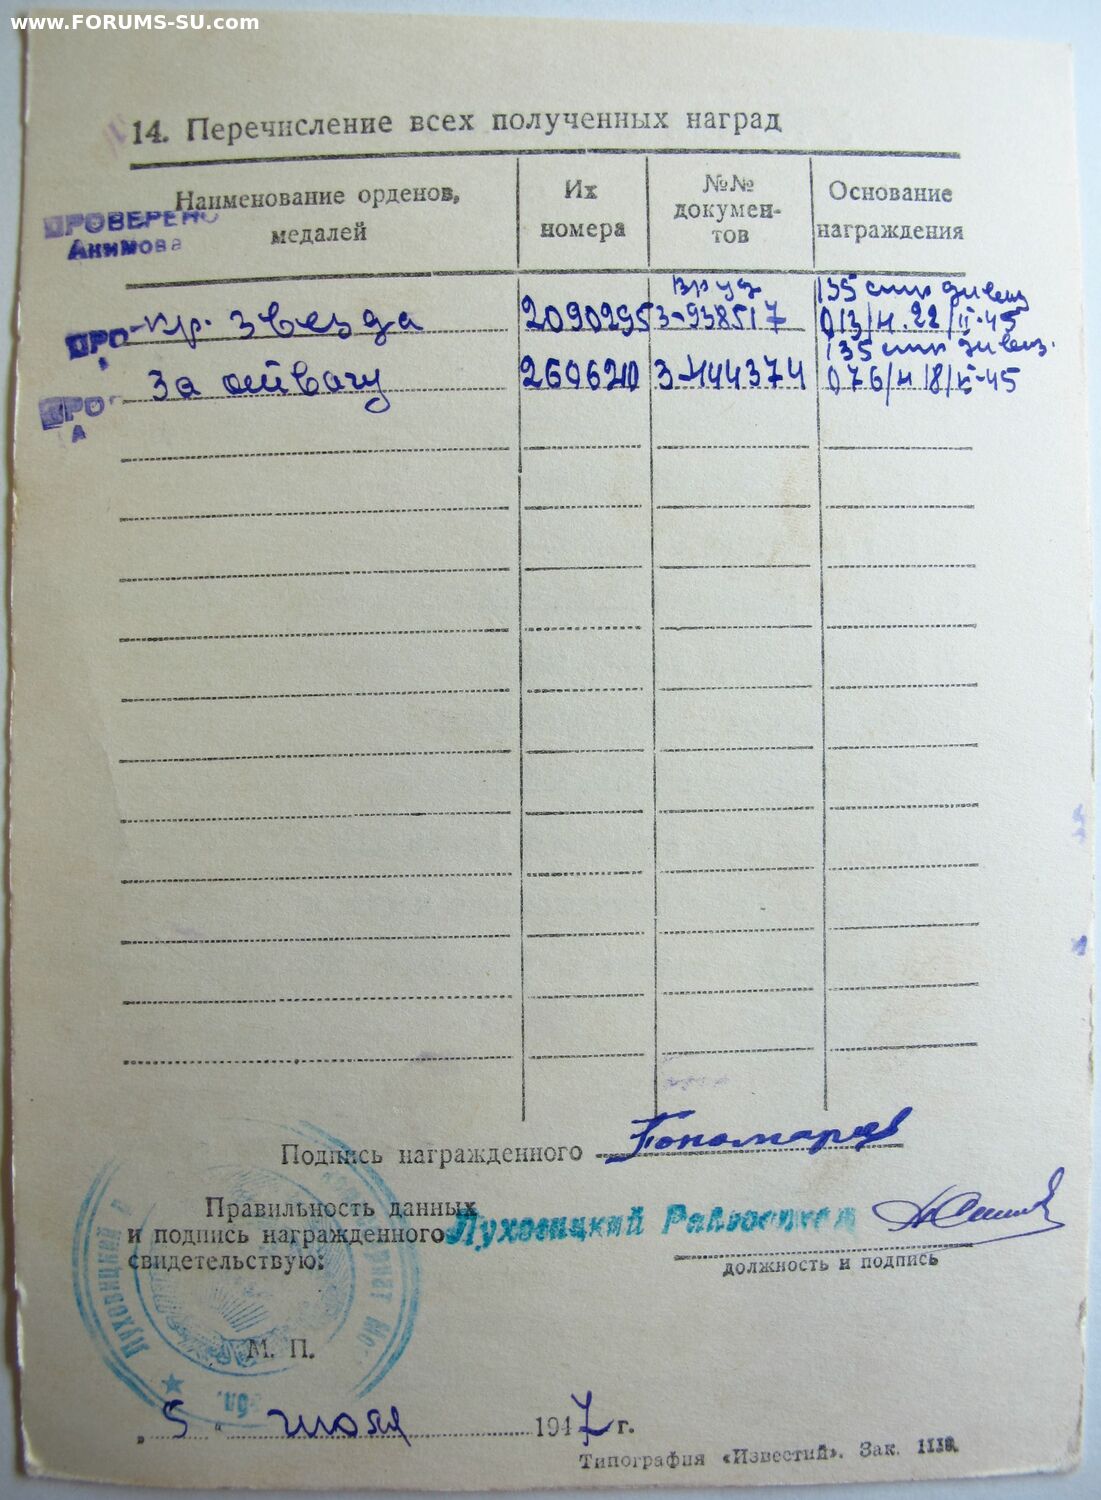 www.FORUMS-SU.com
14. Перечисление всех полученных наград
Наименование орденов, медалей
Их номера
№№ докумен-
тов
Основание награждения
ПРОВЕРЕНО
Акимова
вр уд
135 стр дивиз
ПРО
кр. звезда 2090295 З-938517 013/н. 22/II-45
135 стр дивиз.
ПРО
А
За отвагу 2606210 З-444374 076/н 18/II-45
Подпись награжденного Пономарев
Правильность данных
и подпись награжденного
свидетельствую:
Луховицкий Райвоенком
должность и подпись
М. П.
„ 5 " июля 1947 г.
Типография «Известий». Зак. 1118.